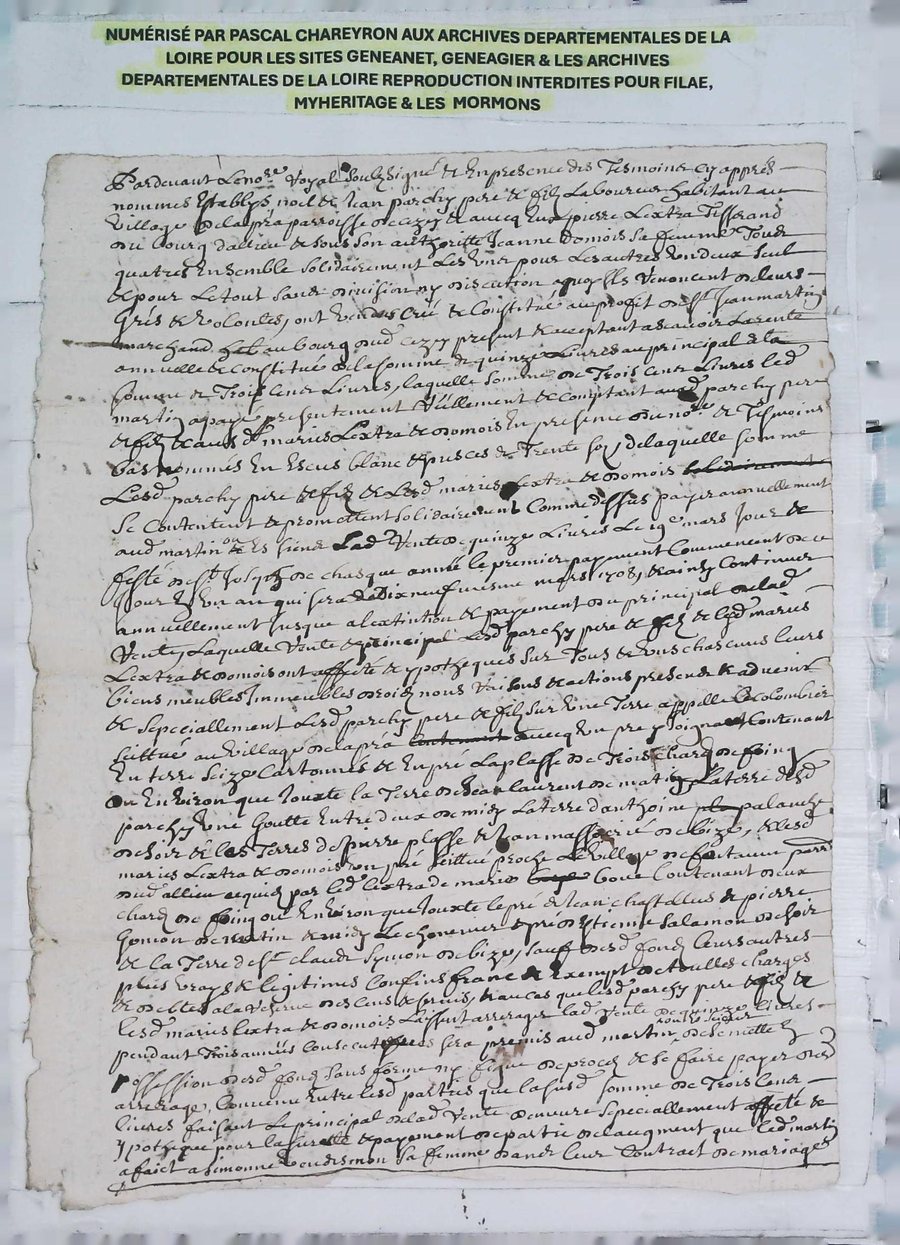 NUMÉRISÉ PAR PASCAL CHAREYRON AUX ARCHIVES DEPARTEMENTALES DE LA
LOIRE POUR LES SITES GENEANET, GENEAGIER & LES ARCHIVES
DEPARTEMENTALES DE LA LOIRE REPRODUCTION INTERDITES POUR FILAE,
MYHERITAGE & LES MORMONS
Pardevant Le no.re Royal Soubzsigné & En presence des Tesmoins cy appres
nommes Establys noel & Jean parchy pere & filz Laboureur habitant au
Village de la pra parroisse de cezay & aucq Eux pierre Lextra Tisserand
du bourg dallieu & sous son authoritte Jeanne Domois sa femme Tous
quatres Ensemble solidairement Les uns pour Les autres un deux seul
& pour Le tout sans division ny discution a quoy Ils Renoncent de leurs
Grés & Volontés, ont Vendus Crée & Constitué au profit de Sr Jean martin
marchand hab.t au bourg dud cezay present & acceptant ascavoir La rente
annuelle & constitué de la somme de quinze Livres au principal de la
somme de Trois cent Livres, laquelle somme de Trois cent Livres led
martin a payé presentement Reellement & Comptant aud parchy pere
& filz & ausd maries Lextra & domois En presence du no.re & Tesmoins
bas nommés En Escus blanc & pieces de Trente solz de laquelle somme
Lesd parchy pere & filz & Lesd maries Lextra & domois
Se Contentent & promettent solidairement Comme dessus payer annuellement
aud martin ou Es siens Lad Rente de quinze Livres Le 19e mars Jour &
feste de St Joseph de chasque année le premier payement Commencent de ce
Jour En un an qui sera Le Dix neufviesme mars 1708, & ainsy Continuer
annuellement Jusque a lextintion & payement du principal de lad
Rente, Laquelle Rente & principal Lesd parchy pere & filz & lesd maries
Lextra & domois ont affecté & ypotheques sur Tous & uns chascuns leurs
biens meubles Immeubles droicts noms Raisons & actions presents & advenir
& Sepeciallement Lesd parchy pere & filz sur une Terre appellé Le colombier
scittué au Village de la pra aucq un pre y Joignant Contenant
En terre seize Cartonnes & En pré La plasse de Trois chard de foing
ou Environ que Jouxte la Terre de Jean laurent de matin La terre desd
parchy une Goutte Entre deux de midy La terre danthoine palanche
de soir & les Terres de pierre plasse & Jean massacrié de bize, & lesd
maries Lextra & domois un pré scittué proche Le Village de
dud allieu acquis par led lextra de marie Contenant deux
chard de foing ou Environ que Jouxte le pré de Jean chastellus & pierre
Gonion de matin & midy Le & pré destienne salamon de soir
& La Terre de St claude symon de bize, sauf desd fonds leurs autres
plus vrays & legitimes Confins franc & Exempt de toutes charges
& debtes a la reserve des cens & servis, & au cas que lesd parchy pere & filz &
lesd maries lextra & domois Laissent arrerager lad Rente de quinze livres
pendant Trois années Consecutives sera permis aud martin de se mettre En
possession desd fonds sans forme ny figure de procès & se faire payer desd
arrerages, Convenu Entre lesd parties que la susd somme de Trois cent
livres faisant Le principal de lad Rente demeure sepeciallement affecté &
ypothequé pour la suretté & payement de partie de laugment que led martin
a faict a simonne sa femme dans leur Contract de mariage